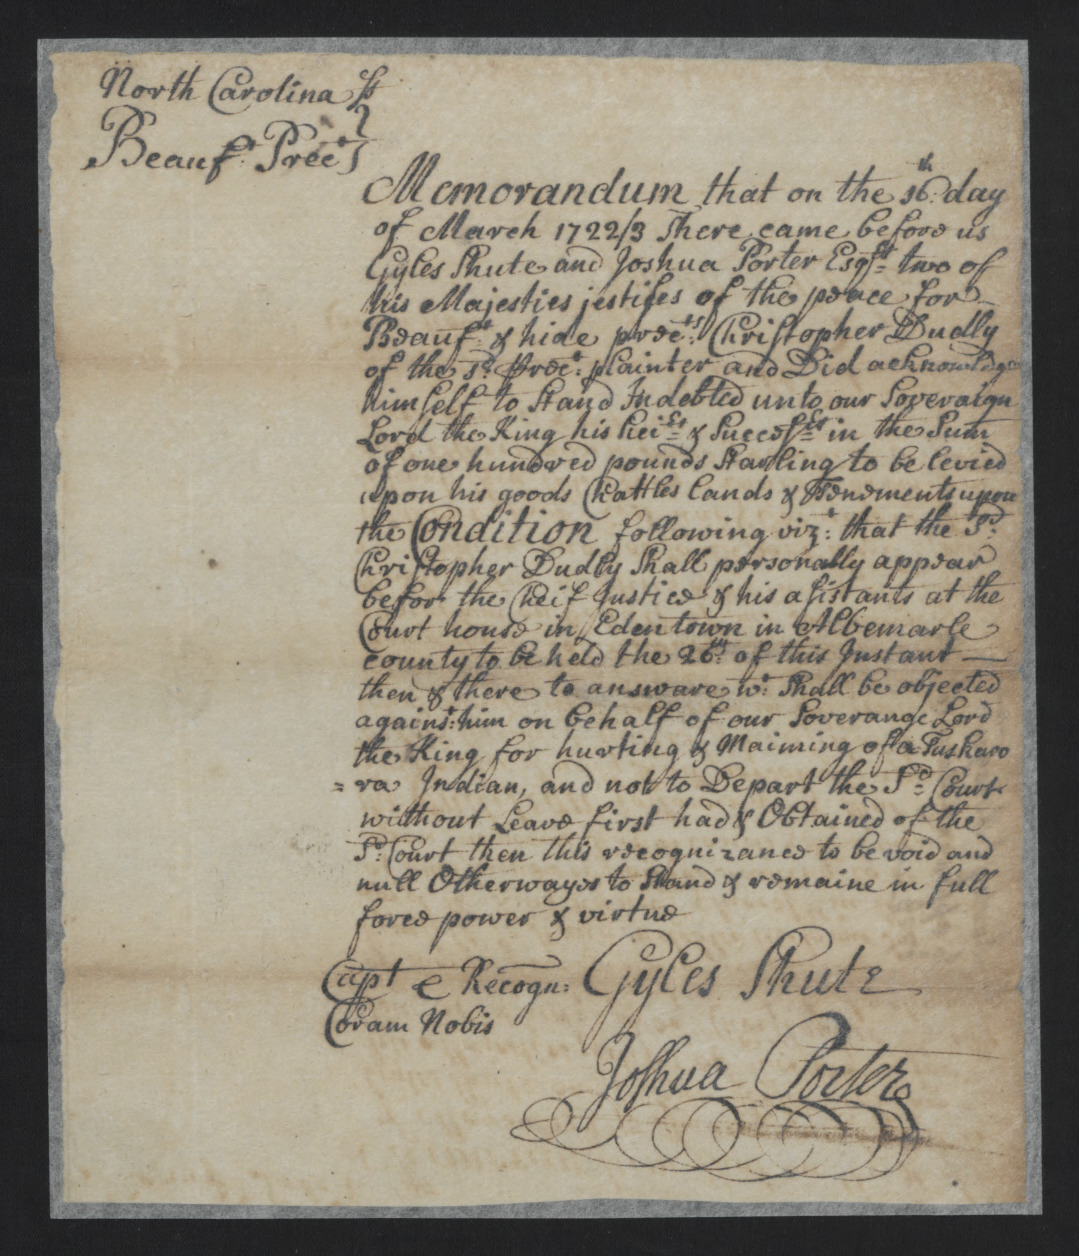 North Carolina ss
Beauf.t Prec.t
Memorandum that on the 16.th day
of March 1722/3 There came before us
Gyles Shute and Joshua Porter Esq.rs two of
his Majesties jestises of the peace for
Beauf.t & hide prec.ts Christopher Dudly
of the s.d Prec.t planter and Did acknowledge
himself to Stand Indebted unto our Soveraign
Lord the King his hei.Es & Success.Es in the Sum
of one hundred pounds Starling to be levied
upon his goods Chattles lands & Tenements upon
the Condition following viz.t that the S.d
Christopher Dudly Shall personally appear
befor the Cheif Justice & his asistants at the
Court house in Edentown in Albemarle
county to be held the 26.th of this Instant
then & there to answare w.t Shall be objected
agains.t him on behalf of our Soverange Lord
the King for hurting & Maiming of a Tuskaro
=ra Indian, and not to Depart the S.d Court
without Leave first had & Obtained of the
S.d Court then this recognizance to be void and
null Otherwayes to Stand & remaine in full
force power & virtue
Capt e Recogn: Gyles Shute
Coram Nobis
Joshua Porter